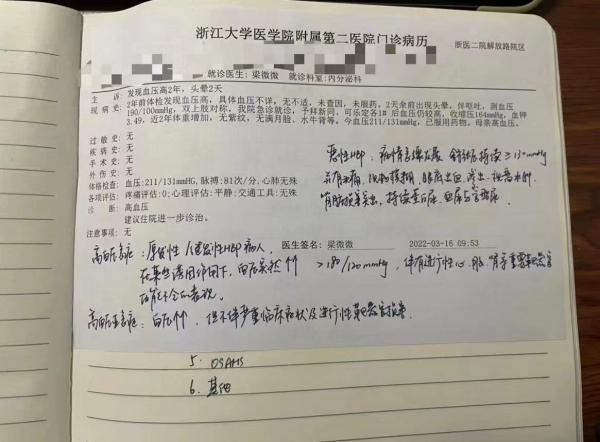 浙江大学医学院附属第二医院门诊病历
浙医二院解放路院区
就诊医生：梁微微 就诊科室：内分泌科
主 诉：发现血压高2年，头晕2天
现 病 史：2年前体检发现血压高，具体血压不详，无不适，未查因，未服药，2天余前出现头晕，伴呕吐，测血压
190/100mmHg，双上肢对称，我院急诊就诊，予拜新同、可乐定各1# 后血压仍较高，收缩压164mmHg，血钾
3.49，近2年体重增加，无紫纹，无满月脸、水牛背等。今血压211/131mmHg，已服用药物。母亲高血压。
过 敏 史：无
疾 病 史：无
手 术 史：无
外 伤 史：无
体格检查：血压:211/131mmHG,脉搏:81次/分,心肺无殊
各项评估：疼痛评估:0;心理评估:平静;交通工具:无殊
诊 断：高血压
建议住院进一步诊治。
注意事项：无
恶性HBP：病情急骤发展 舒张压持续≥130mmHg
头痛，视物模糊，眼底出血、渗出，视盘水肿
肾脏损害突出，持续蛋白尿，血尿与管型尿。
医生签名：梁微微 2022-03-16 09:53
高血压急症：原发性/继发性HBP病人，
在某些诱因作用下，血压突然↑↑ >180/120mmHg，伴有进行性心、脑、肾等重要靶器官
功能不全的表现。
高血压亚急症：血压↑↑，但不伴严重临床症状及进行性靶器官损害．
5. OSAHS
6. 其他